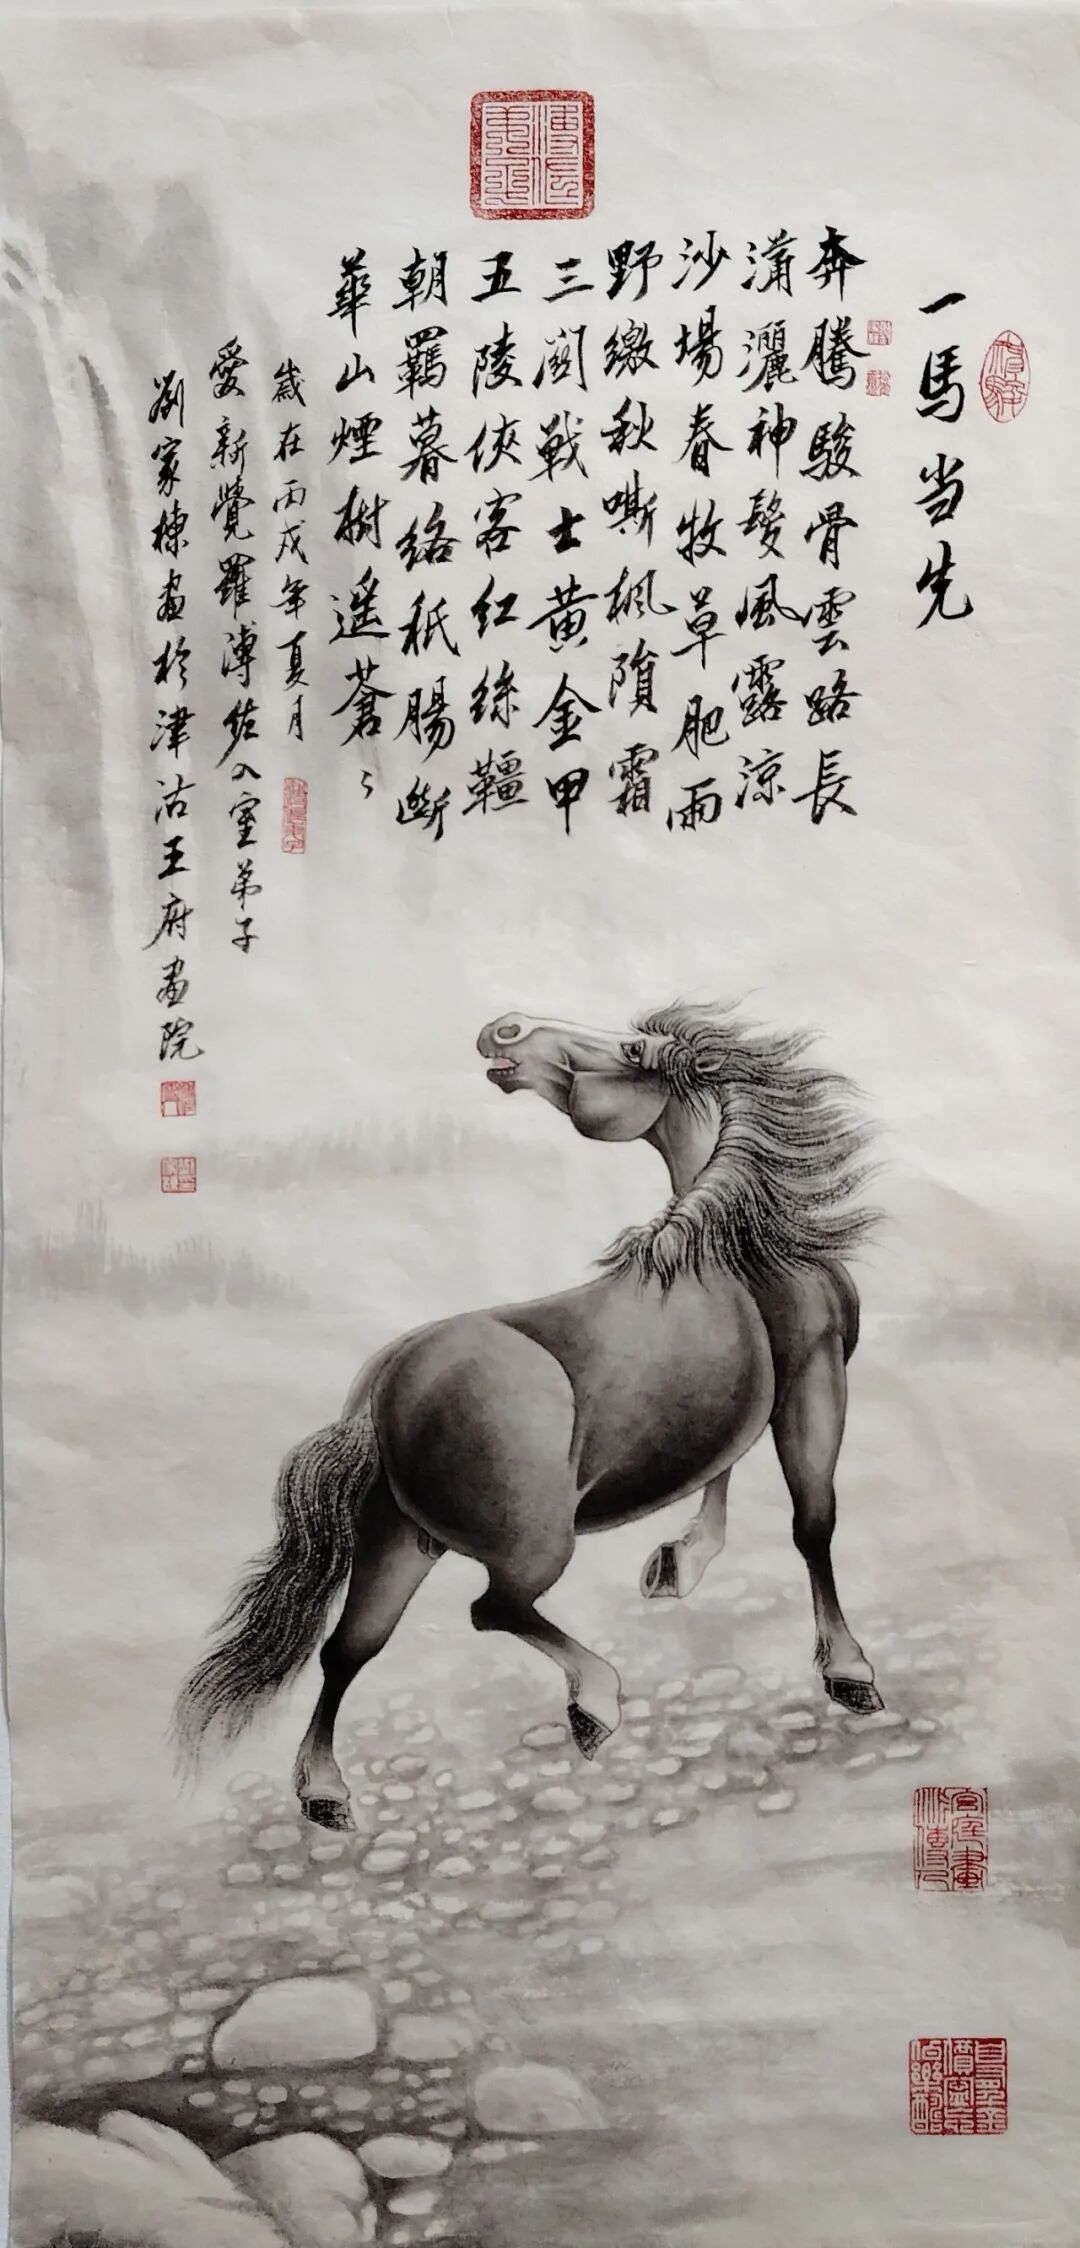 一馬当先
奔騰駿骨雲路長
瀟灑神鬉風露涼
沙場春牧草肥雨
野繳秋嘶楓隕霜
三関戰士黄金甲
五陵俠客紅絲韁
朝羈暮絡秖腸斷
華山煙樹遥蒼々
歲在丙戌年夏月
愛新覺羅溥佐入室弟子
劉家棟畫於津沽王府畫院